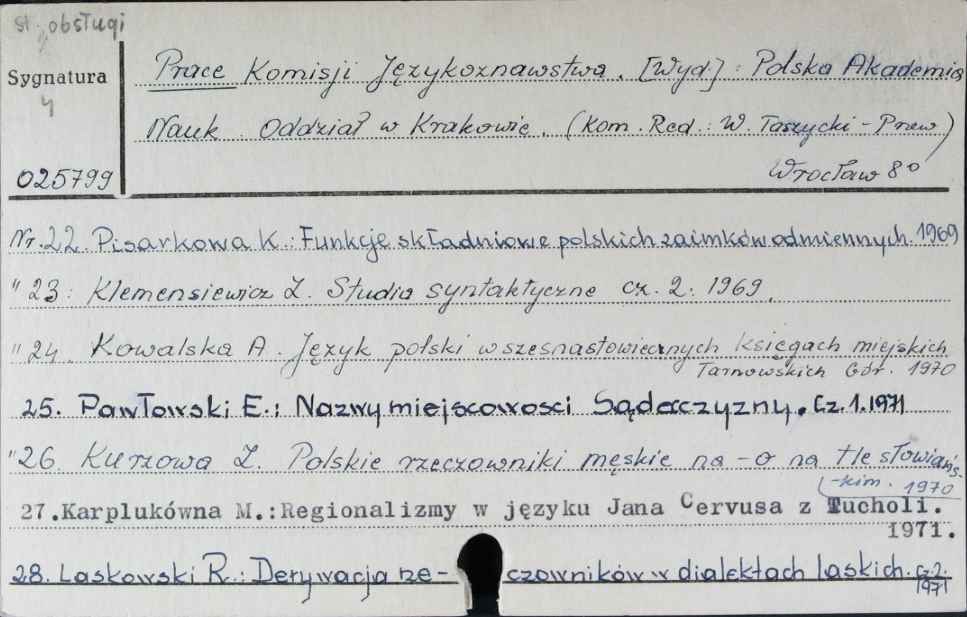 st. obsługi
Sygnatura
4
025799
Prace Komisji Językoznawstwa. [Wyd.]: Polska Akademia
Nauk. Oddział w Krakowie. (Kom. Red.: W. Taszycki - Przew)
Wrocław 8°
Nr. 22. Pisarkowa K.: Funkcje składniowe polskich zaimków odmiennych. 1969
" 23: Klemensiewicz Z. Studia syntaktyczne cz. 2. 1969.
" 24. Kowalska A. Język polski w szesnastowiecznych księgach miejskich
Tarnowskich Gór. 1970
25. Pawłowski E.: Nazwy miejscowości Sądecczyzny. Cz. 1. 1971
" 26. Kurzowa Z. Polskie rzeczowniki męskie na -o na tle słowiańs-
-kim. 1970
27.Karplukówna M.:Regionalizmy w języku Jana Cervusa z Tucholi.
1971.
28. Laskowski R.: Derywacja rze- czowników w dialektach laskich. cz. 2.
1971